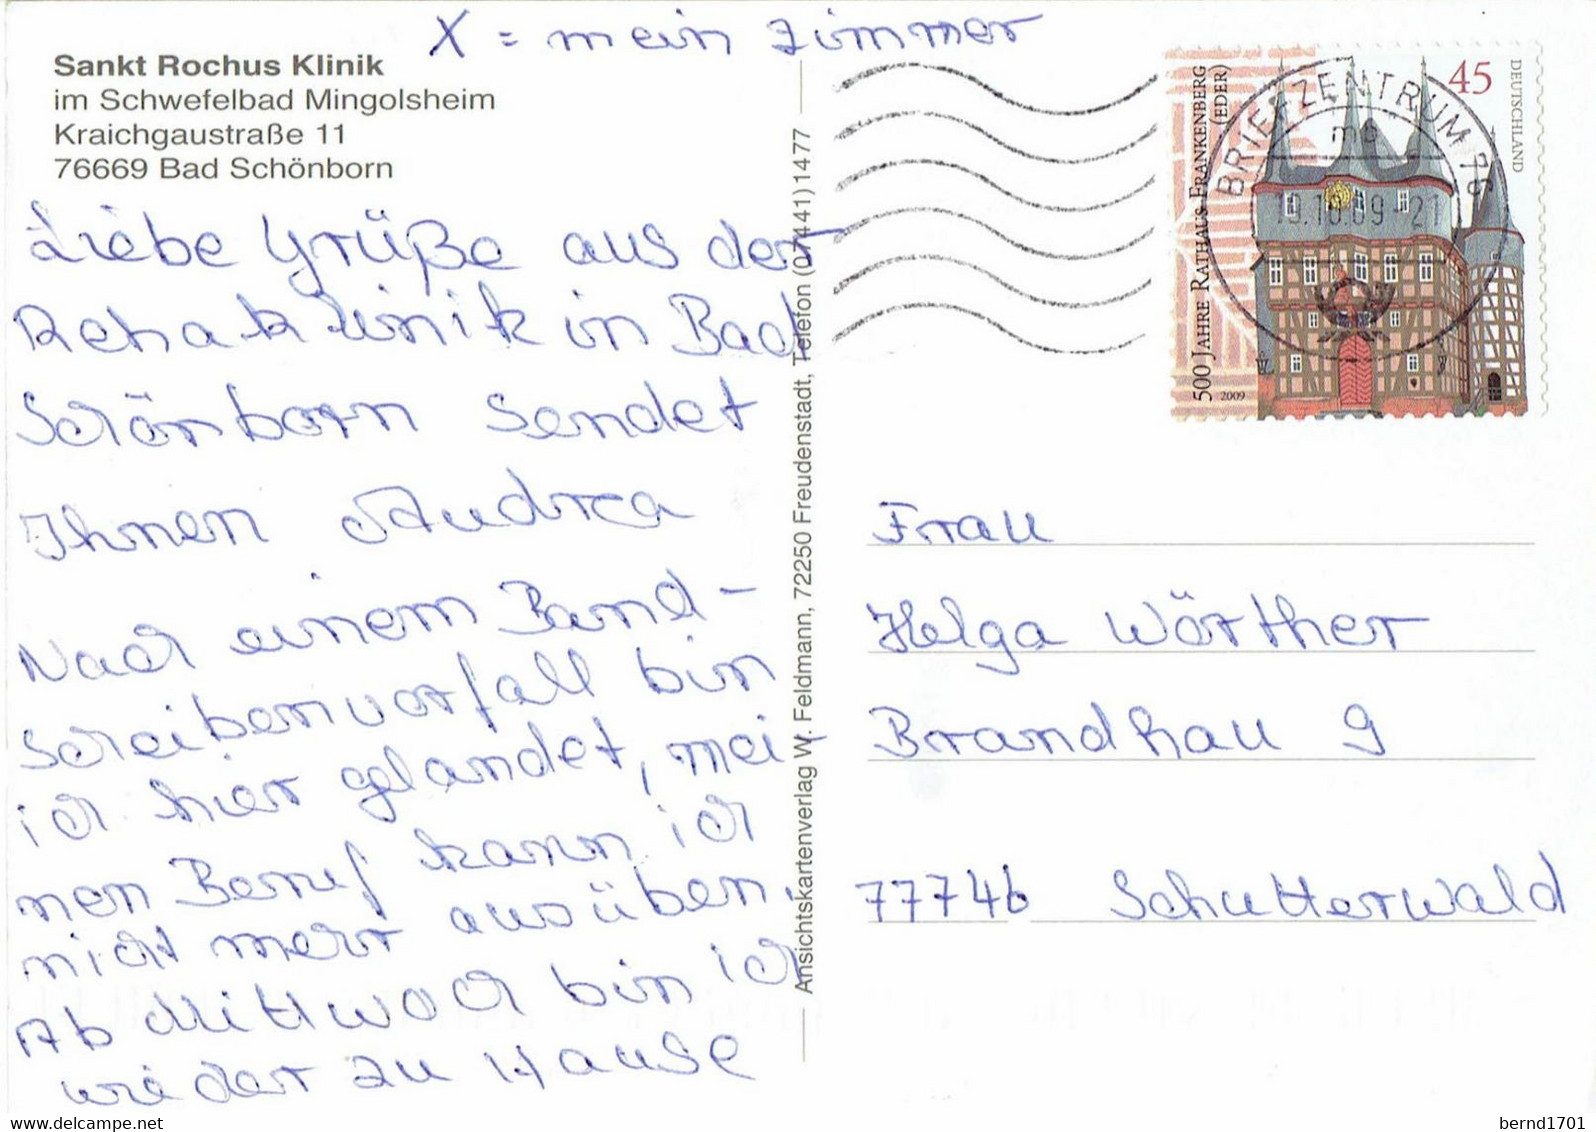 X = mein Zimmer
Sankt Rochus Klinik
im Schwefelbad Mingolsheim
Kraichgaustraße 11
76669 Bad Schönborn
Liebe Grüße aus der
Rehaklinik in Bad
Schönborn sendet
Ihnen Andrea
Nach einem Band-
scheibenvorfall bin
ich hier gelandet, mei-
nen Beruf kann ich
nicht mehr ausüben.
Ab Mittwoch bin ich
wieder zu Hause
Ansichtskartenverlag W. Feldmann, 72250 Freudenstadt, Telefon (07441) 1477
500 JAHRE RATHAUS FRANKENBERG
(EDER)
2009
45
DEUTSCHLAND
BRIEFZENTRUM 76
.10.09-21
Frau
Helga Wörther
Brandhau 9
77746 Schutterwald
delcampe.net
bernd1701